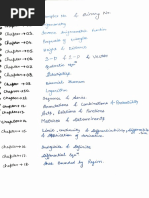 Chapter → 01
Complex No. & Binary No.
Chapter → 02
Geometry
Chapter → 03
Inverse Trigonometric function
Chapter → 04
Properties of
Chapter → 05
Height & Distance
Chapter → 06
2-D & 3-D & Vector
Chapter → 07
Quadratic eqⁿ
Chapter → 08
Statistics
Chapter → 09
Binomial Theorem
Chapter →
Logarithm
Chapter →
Sequence & Series
Chapter →
Permutations & Combinations & Probability
Chapter →
Sets, Relations & Functions
Chapter →
Matrices & Determinants
Chapter →
Limit, Continuity & Differentiability, Differentiation
& Application of Derivative
Chapter →
Integration & Definite
Chapter →
Differential eqⁿ
Chapter →
Area Bounded by Region.